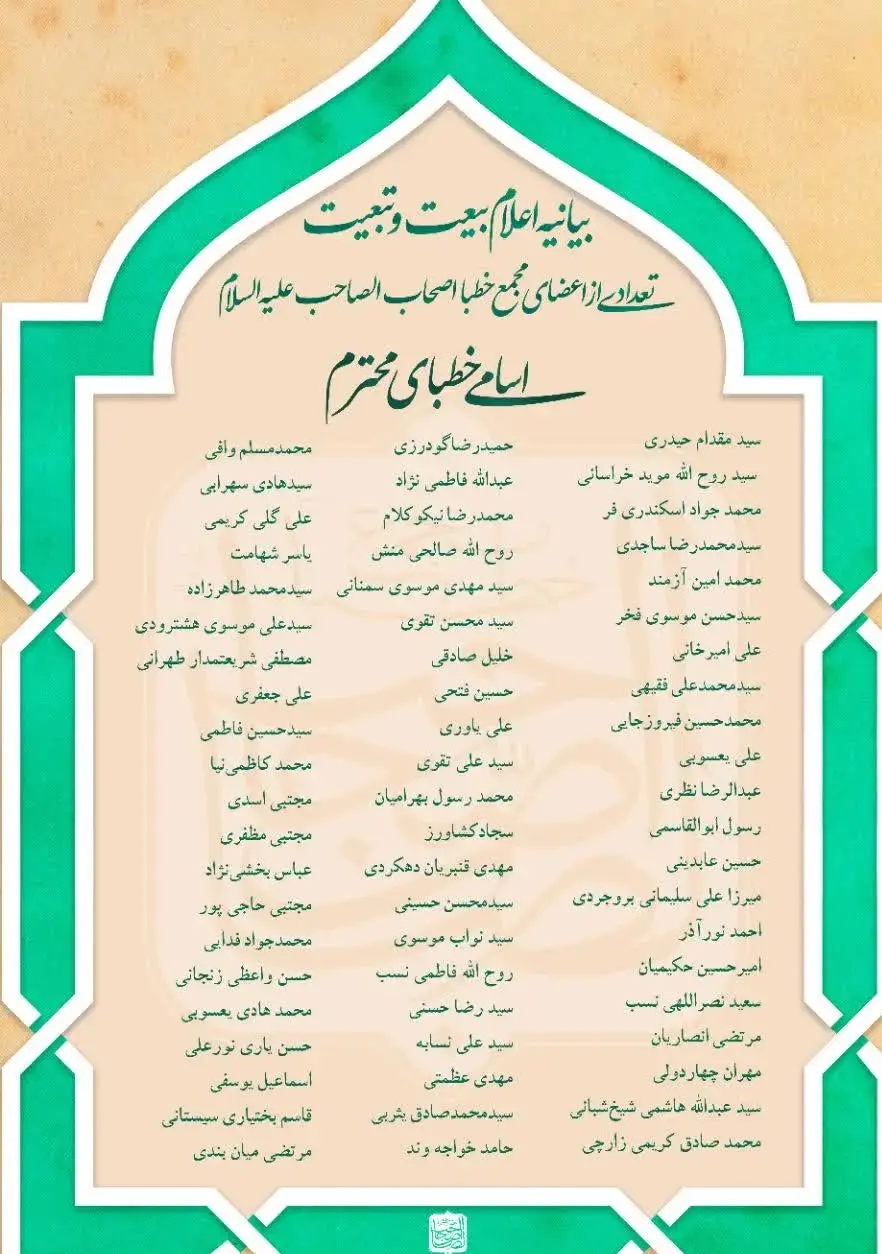 بیانیه اعلام بیعت و تبعیت
تعدادے از اعضای مجمع خطبا اصحاب الصاحب علیه السلام
اسامے خطبای محترم
سید مقدام حیدری
سید روح الله موید خراسانی
محمد جواد اسکندری فر
سیدمحمدرضا ساجدی
محمد امین آزمند
سیدحسن موسوی فخر
علی امیرخانی
سیدمحمدعلی فقیهی
محمدحسین فیروزجایی
علی یعسوبی
عبدالرضا نظری
رسول ابوالقاسمی
حسین عابدینی
میرزا علی سلیمانی بروجردی
احمد نورآذر
امیرحسین حکیمیان
سعید نصراللهی نسب
مرتضی انصاریان
مهران چهاردولی
سید عبدالله هاشمی شیخ‌شبانی
محمد صادق کریمی زارچی
حمیدرضاگودرزی
عبدالله فاطمی نژاد
محمدرضا نیکوکلام
روح الله صالحی منش
سید مهدی موسوی سمنانی
سید محسن تقوی
خلیل صادقی
حسین فتحی
علی یاوری
سید علی تقوی
محمد رسول بهرامیان
سجادکشاورز
مهدی قنبریان دهکردی
سیدمحسن حسینی
سید نواب موسوی
روح الله فاطمی نسب
سید رضا حسنی
سید علی نسابه
مهدی عظمتی
سیدمحمدصادق یثربی
حامد خواجه وند
محمدمسلم وافی
سیدهادی سهرابی
علی گلی کریمی
یاسر شهامت
سیدمحمد طاهرزاده
سیدعلی موسوی هشترودی
مصطفی شریعتمدار طهرانی
علی جعفری
سیدحسین فاطمی
محمد کاظمی‌نیا
مجتبی اسدی
مجتبی مظفری
عباس بخشی‌نژاد
مجتبی حاجی پور
محمدجواد فدایی
حسن واعظی زنجانی
محمد هادی یعسوبی
حسن یاری نورعلی
اسماعیل یوسفی
قاسم بختیاری سیستانی
مرتضی میان بندی